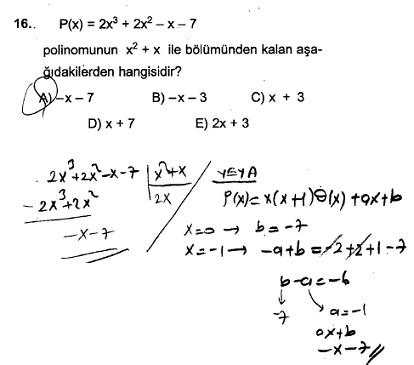 16.. P(x) = 2x³ + 2x² – x – 7
polinomunun x² + x ile bölümünden kalan aşa-
ğıdakilerden hangisidir?
A) –x – 7 B) –x – 3 C) x + 3
D) x + 7 E) 2x + 3
2x³+2x²-x-7 | x²+x
- 2x³+2x² 2x
-x-7
VEYA
P(x)= x(x+1)Θ(x)+ax+b
x=0 → b=-7
x=-1 → -a+b = -2+2+1-7
b-a=-6
-7 a=-1
ax+b
-x-7//